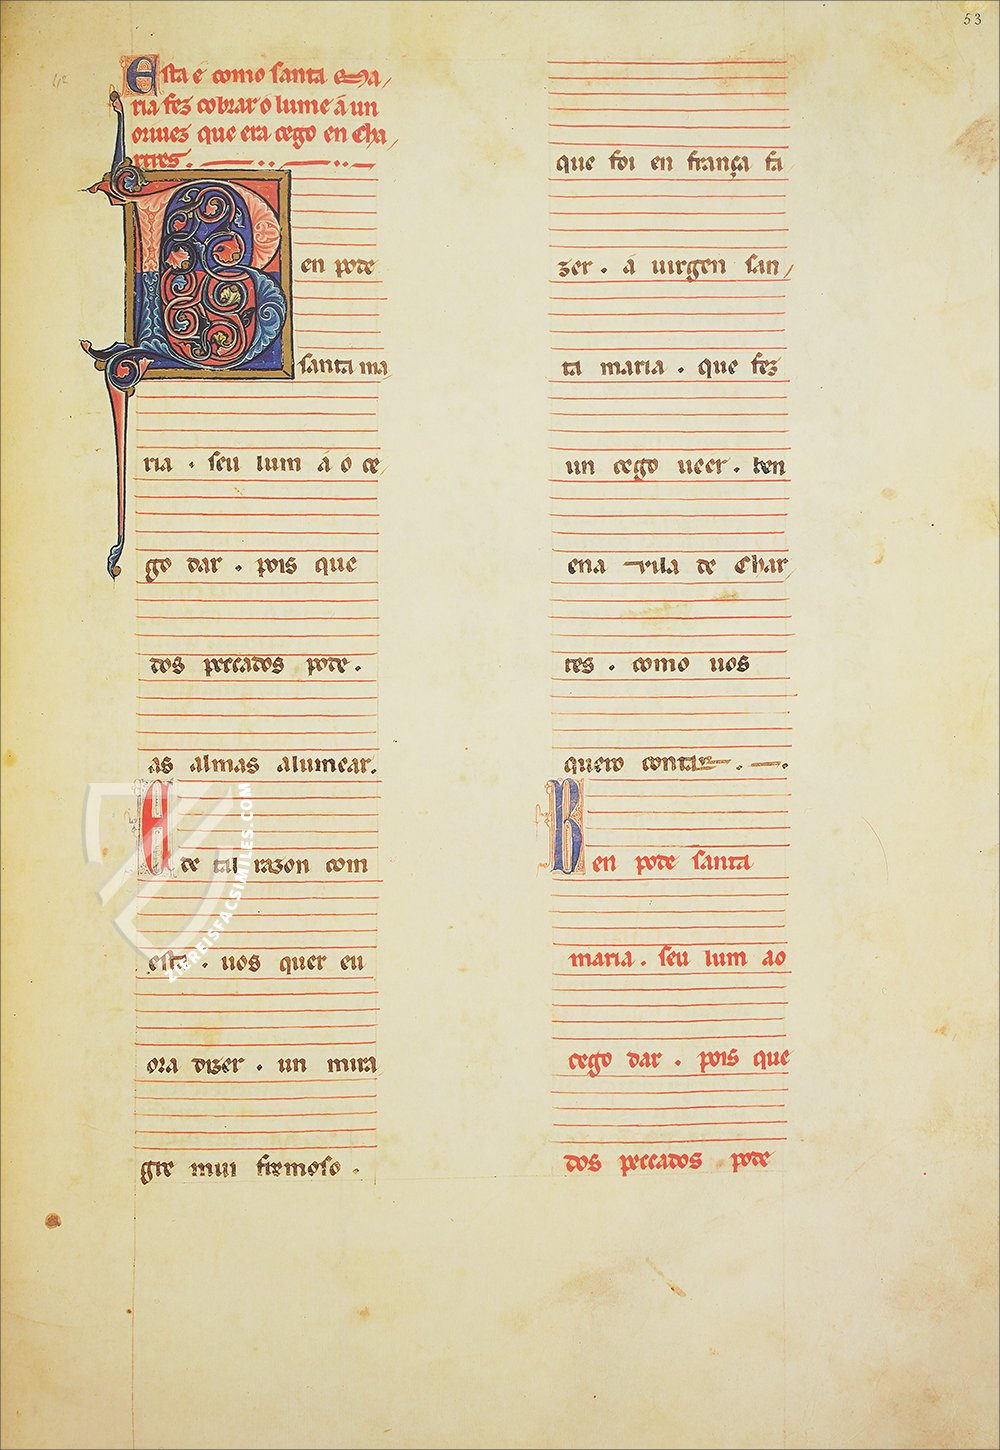 53
Esta é como santa Ma/
ria fez cobrar o lume á un
oriuez que era cego en Cha/
rtres.
Ben pode
santa ma
ria . seu lum á o ce/
go dar . pois que
dos peccados pode .
as almas alumear.
E de tal razon com
esta . uos quer eu
ora dizer . un mira
gre mui fremoso .
que foi en frança fa
zer . á uirgen san/
ta maria . que fez
un cego ueer . ben
ena vila de Char
tes . como uos
quero contar . .
Ben pode santa
maria . seu lum ao
cego dar . pois que
dos peccados pode
ZIEREISFACSIMILES.COM